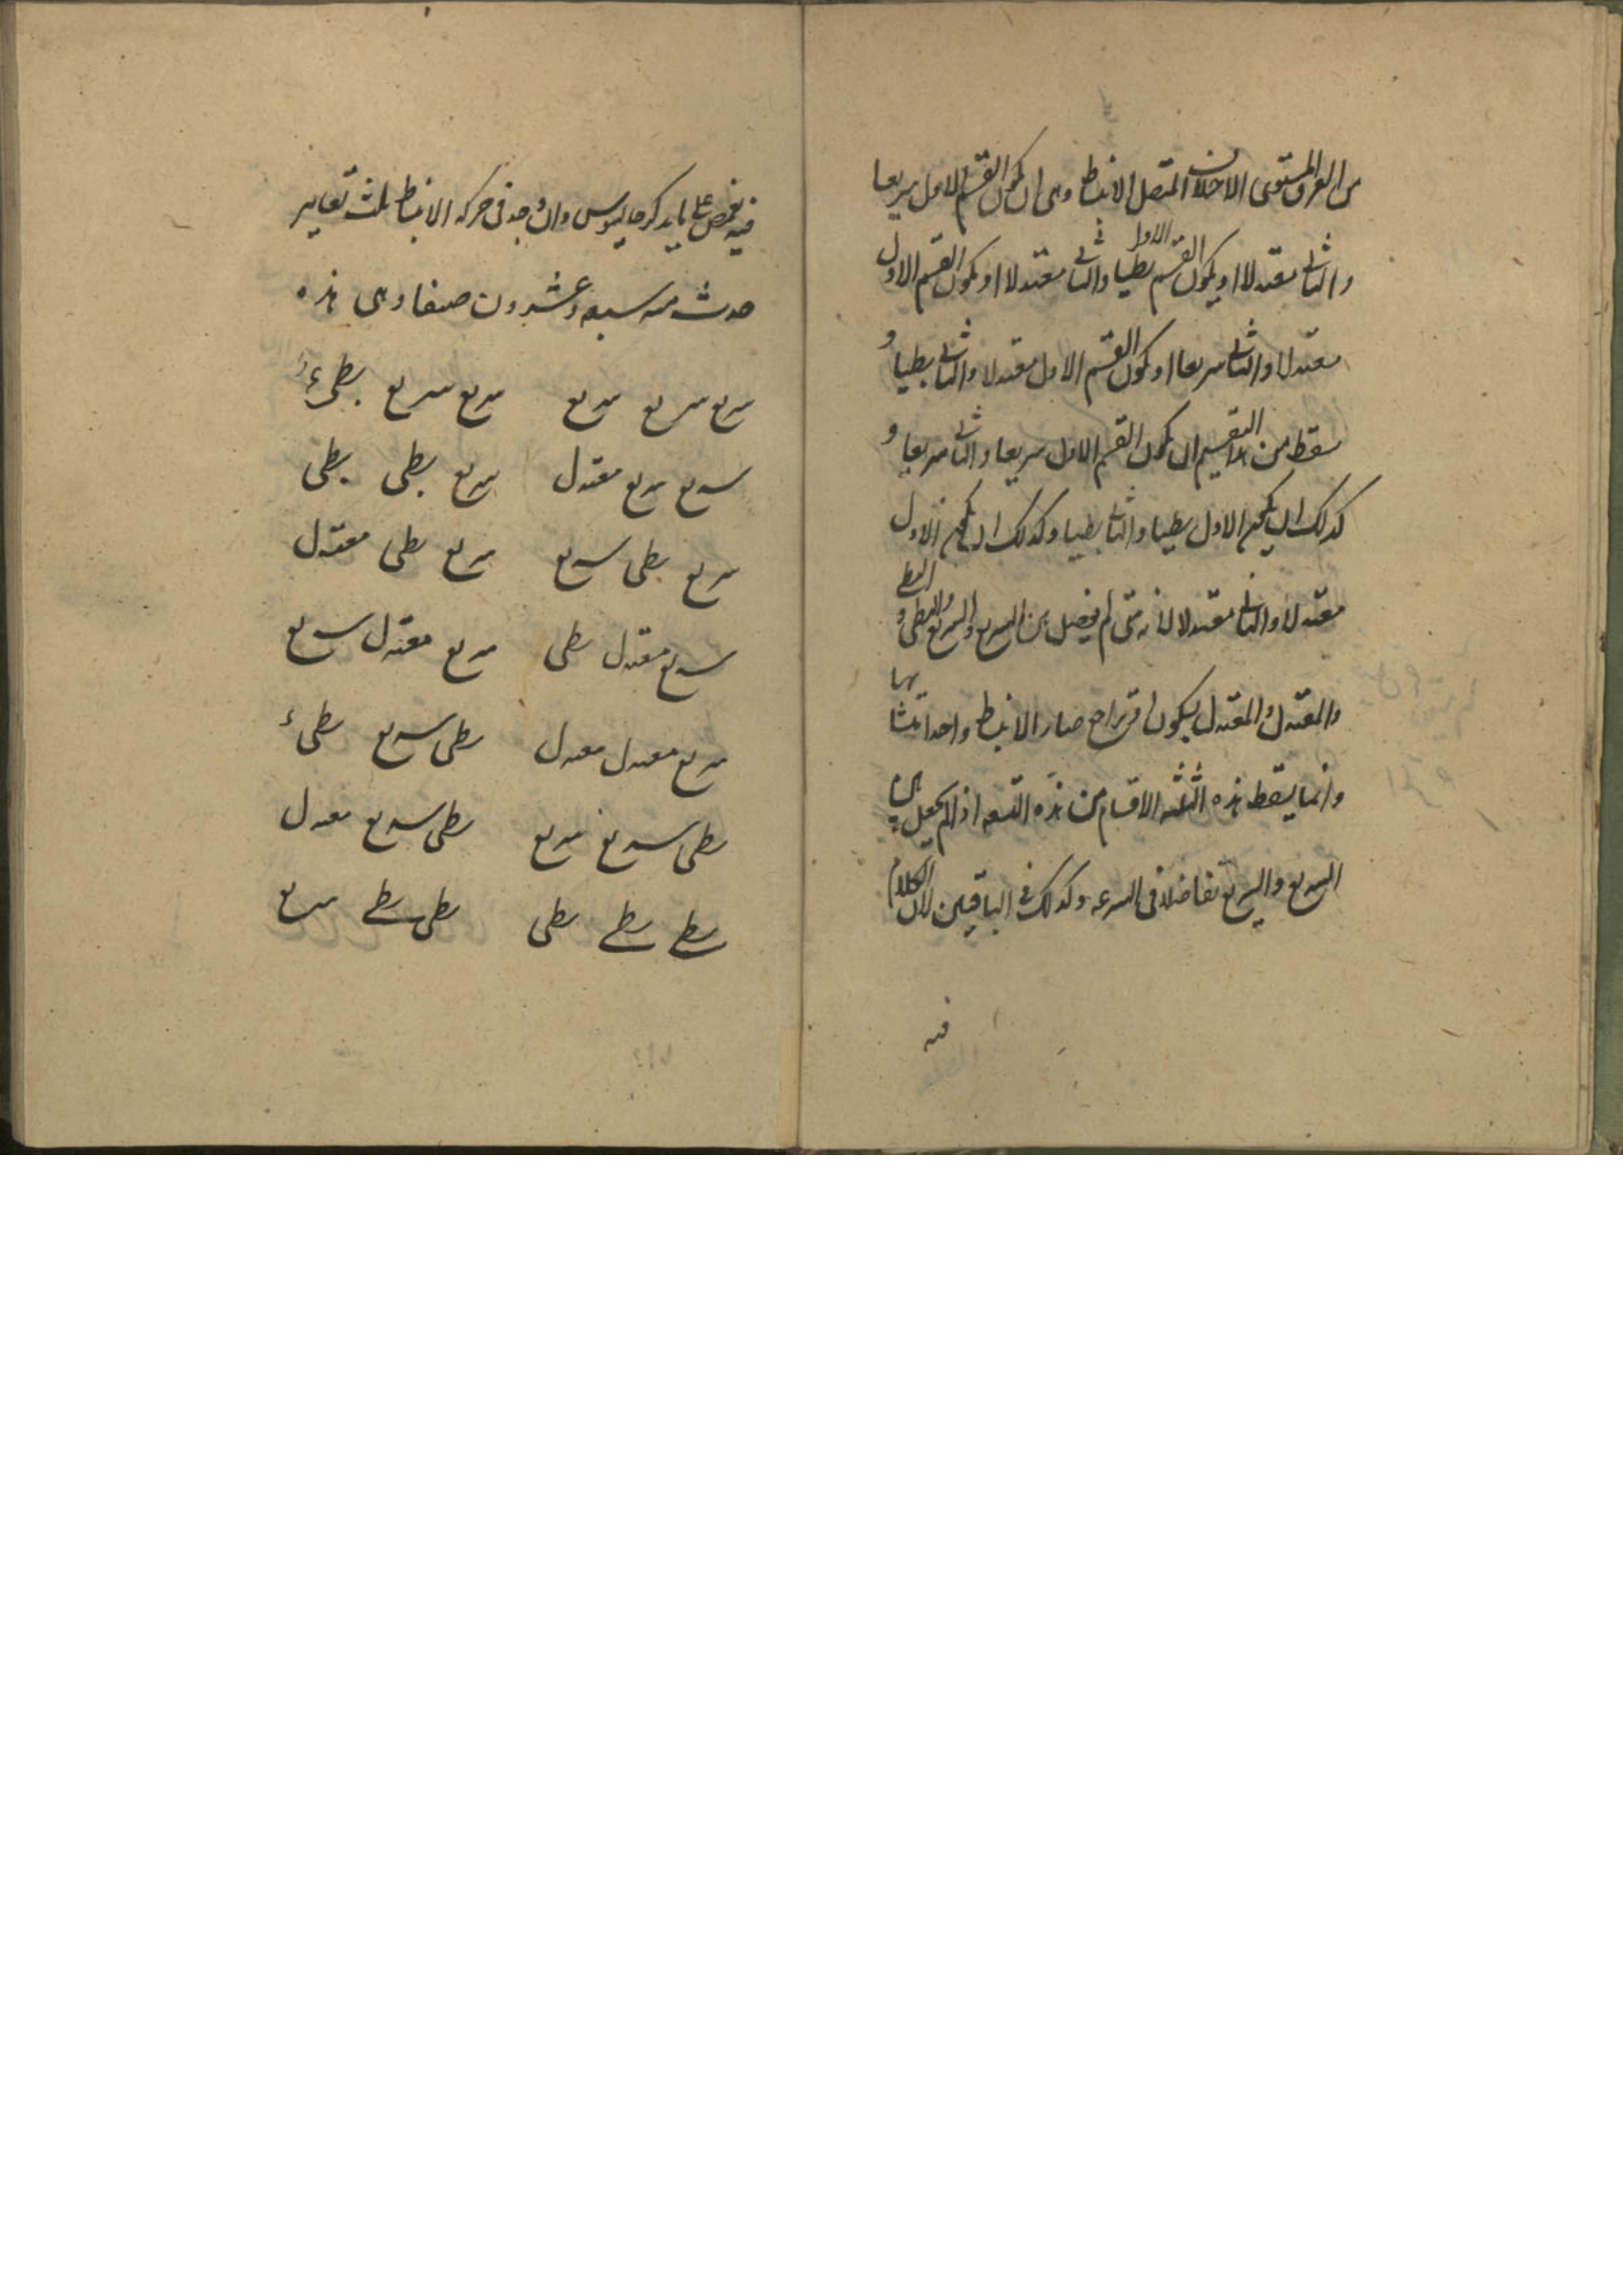 من العرق المستوى الاختلاف المتصل الانبساط وهى ان يكون القسم الاول سريعا
والثانى معتدلا او يكون القسم الاول بطيا والثانى معتدلا او يكون القسم الاول
معتدلا والثانى سريعا او يكون القسم الاول معتدلا والثانى بطيا و
سقط من التقسيم ان يكون القسم الاول سريعا والثانى سريعا و
كذلك ان يكون الاول بطيا والثانى بطيا وكذلك ان يكون الاول
معتدلا والثانى معتدلا لانه متى لم يفصل بين السريع والسريع والبطى والبطى و
والمعتدل والمعتدل بسكون او تراجع صار الانبساط واحدا متشابها
وانما يسقط هذه الثلثه الاقسام من هذه التسعه اذا لم يجعل بين
السريع والسريع تفاضلا فى السرعه وكذلك فى الباقيين لان الكلام
فيه
فيه غمض على ما يذكر جالينوس وان وجد فى حركه الانبساط ثلث تغايير
حدث منه سبعه وعشرون صنفا وهى هذه
سريع سريع سريع سريع سريع بطىء
سريع سريع معتدل سريع بطى بطى
سريع بطى سريع سريع بطى معتدل
سريع معتدل بطى سريع معتدل سريع
سريع معتدل معتدل بطى سريع بطىء
بطى سريع سريع بطى سريع معتدل
بطى بطى بطى بطى بطى سريع